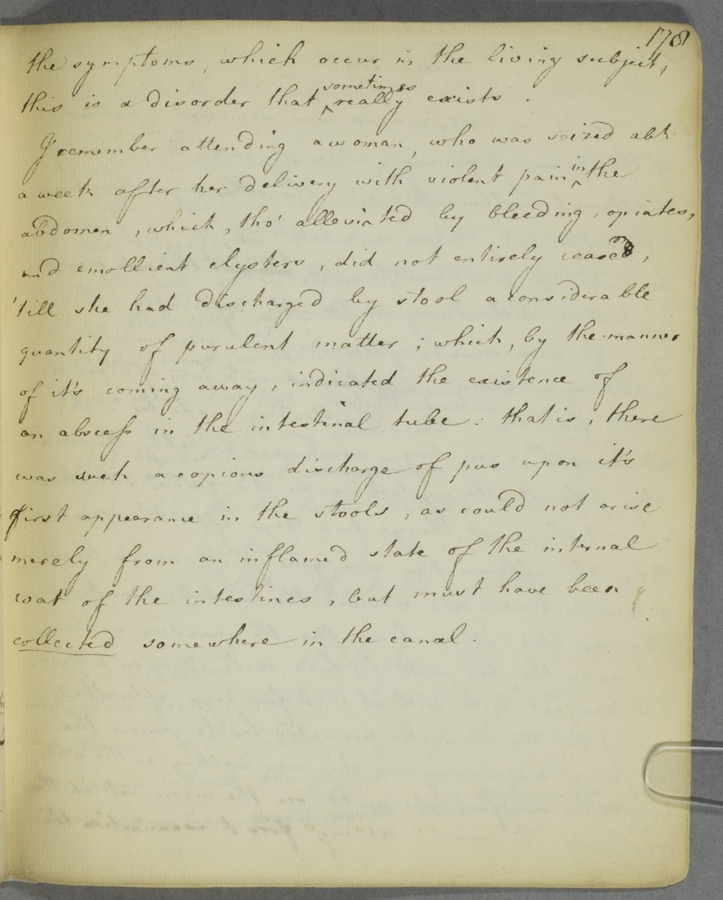 178
the symptoms, which occur in the living subject,
this is a disorder that sometimes really exists.
I remember attending a woman, who was seized abt
a week after her delivery with violent pain in the
abdomen, which, tho' alleviated by bleeding, opiates,
and emollient clysters, did not entirely cease,
'till she had discharged by stool a considerable
quantity of purulent matter; which, by the manner
of it's coming away, indicated the existence of
an abscess in the intestinal tube: that is, there
was such a copious discharge of pus upon it's
first appearance in the stools, as could not arise
merely from an inflamed state of the internal
coat of the intestines, but must have been
collected somewhere in the canal.